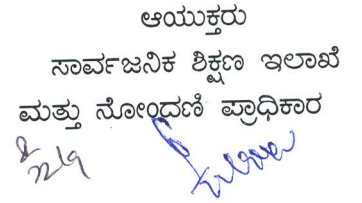 ಆಯುಕ್ತರು
ಸಾರ್ವಜನಿಕ ಶಿಕ್ಷಣ ಇಲಾಖೆ
ಮತ್ತು ನೋಂದಣಿ ಪ್ರಾಧಿಕಾರ